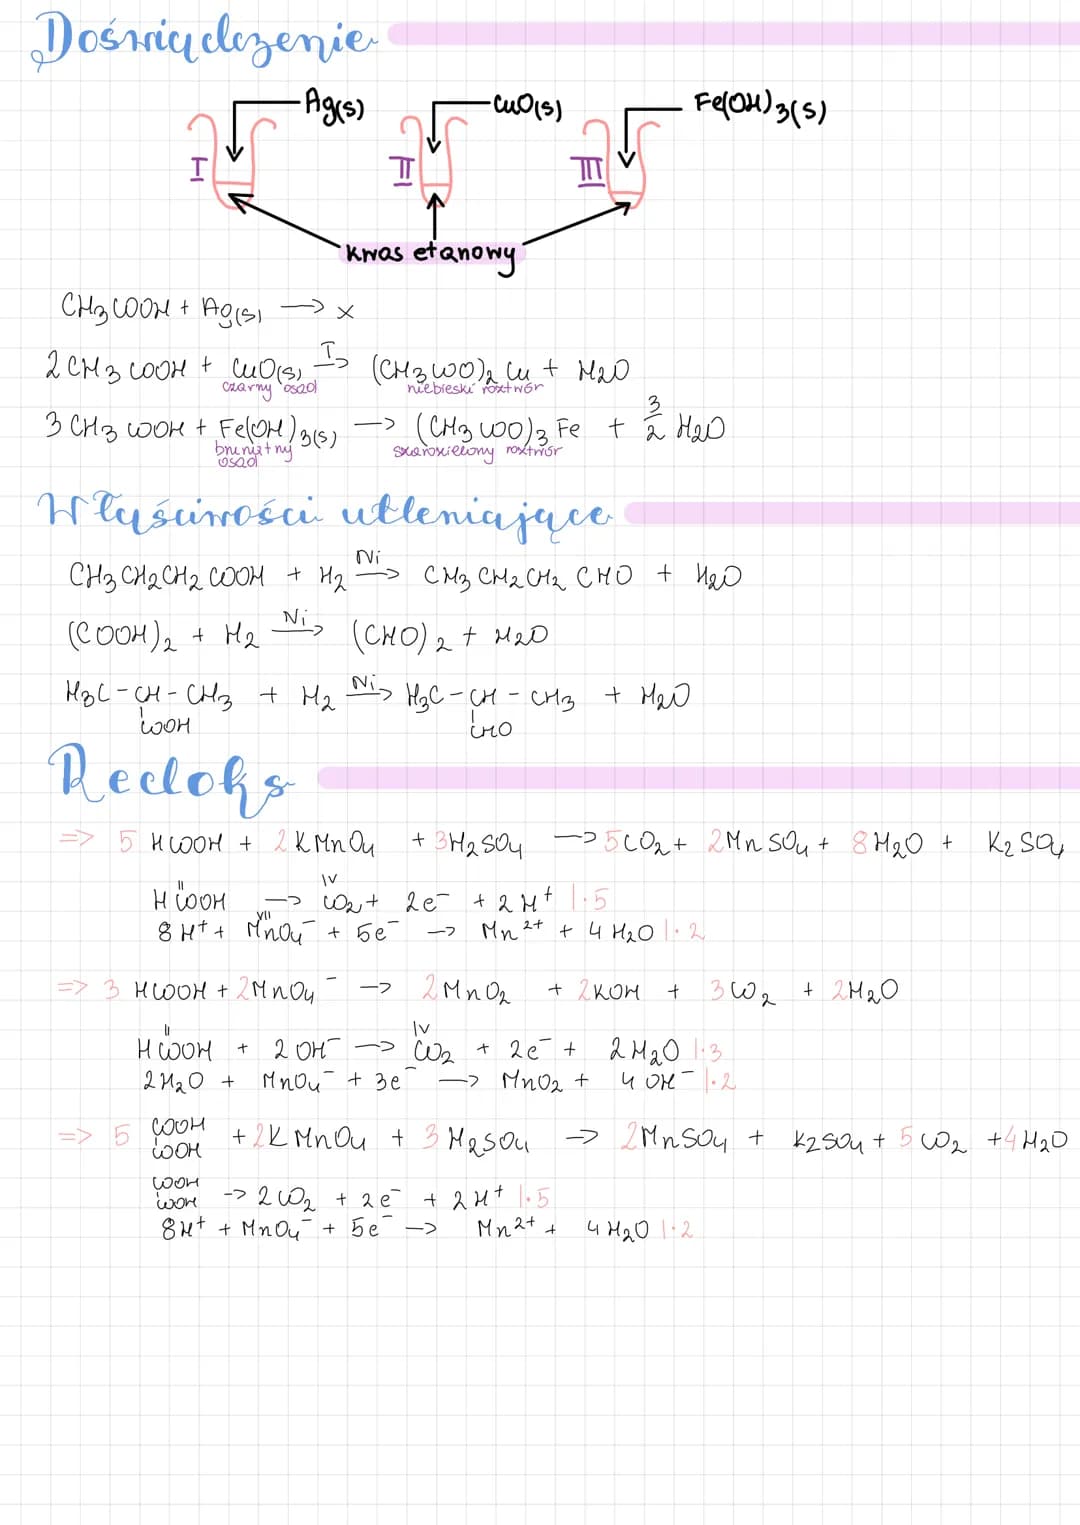 Doświadczenie
Ag(s) CuO(s) Fe(OH)3(s)
I II III
kwas etanowy
CH3COOH + Ag(s) → x
2 CH3COOH + CuO(s) I→ (CH3COO)2 Cu + H2O
czarny osad niebieski roztwór
3 CH3COOH + Fe(OH)3(s) → (CH3COO)3 Fe + 3/2 H2O
brunatny osad szarozielony roztwór
Właściwości utleniające
CH3CH2CH2COOH + H2 Ni→ CH3CH2CH2CHO + H2O
(COOH)2 + H2 Ni→ (CHO)2 + H2O
H3C-CH-CH3 + H2 Ni→ H3C-CH-CH3 + H2O
COOH CHO
Redoks
=> 5 HCOOH + 2 KMnO4 + 3H2SO4 → 5CO2 + 2MnSO4 + 8H2O + K2SO4
II IV
HCOOH → CO2 + 2e⁻ + 2H⁺ |·5
VII
8H⁺ + MnO4⁻ + 5e⁻ → Mn²⁺ + 4H2O |·2
=> 3 HCOOH + 2MnO4⁻ → 2MnO2 + 2KOH + 3CO2 + 2H2O
II IV
HCOOH + 2OH⁻ → CO2 + 2e⁻ + 2H2O |·3
2H2O + MnO4⁻ + 3e⁻ → MnO2 + 4OH⁻ |·2
=> 5 COOH COOH + 2KMnO4 + 3H2SO4 → 2MnSO4 + K2SO4 + 5CO2 + 4H2O
COOH COOH → 2CO2 + 2e⁻ + 2H⁺ |·5
8H⁺ + MnO4⁻ + 5e⁻ → Mn²⁺ + 4H2O |·2